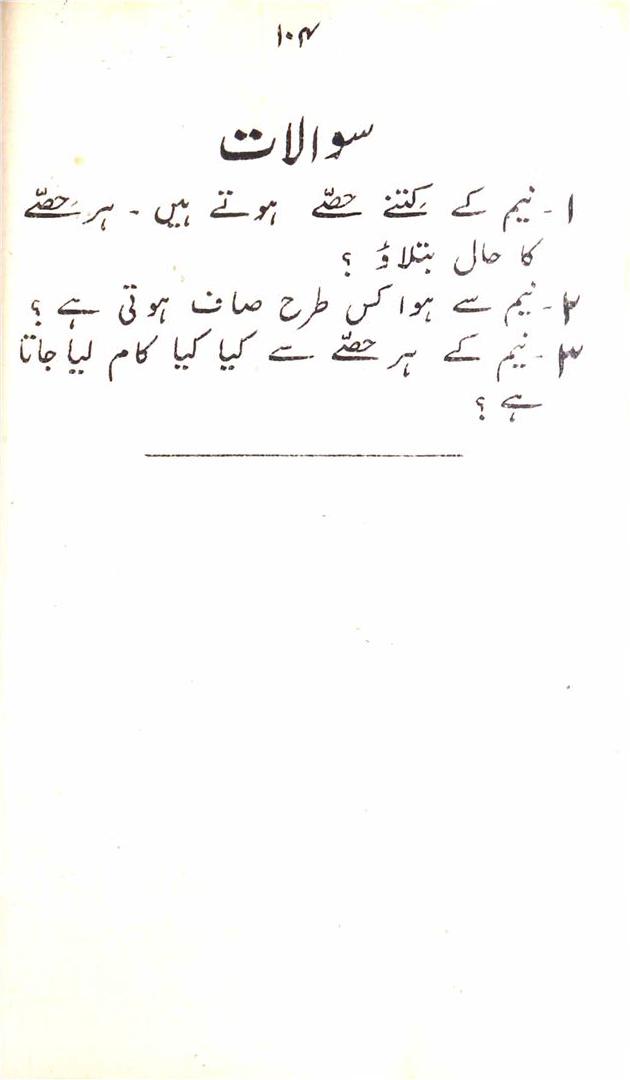 ۱۰۴
سوالات
۱۔ نیم کے کِتنے حصّے ہوتے ہیں۔ ہر حِصّے
کا حال بتلاؤ ؟
۲۔ نیم سے ہوا کس طرح صاف ہوتی ہے ؟
۳۔ نیم کے ہر حصّے سے کیا کیا کام لیا جاتا
ہے ؟